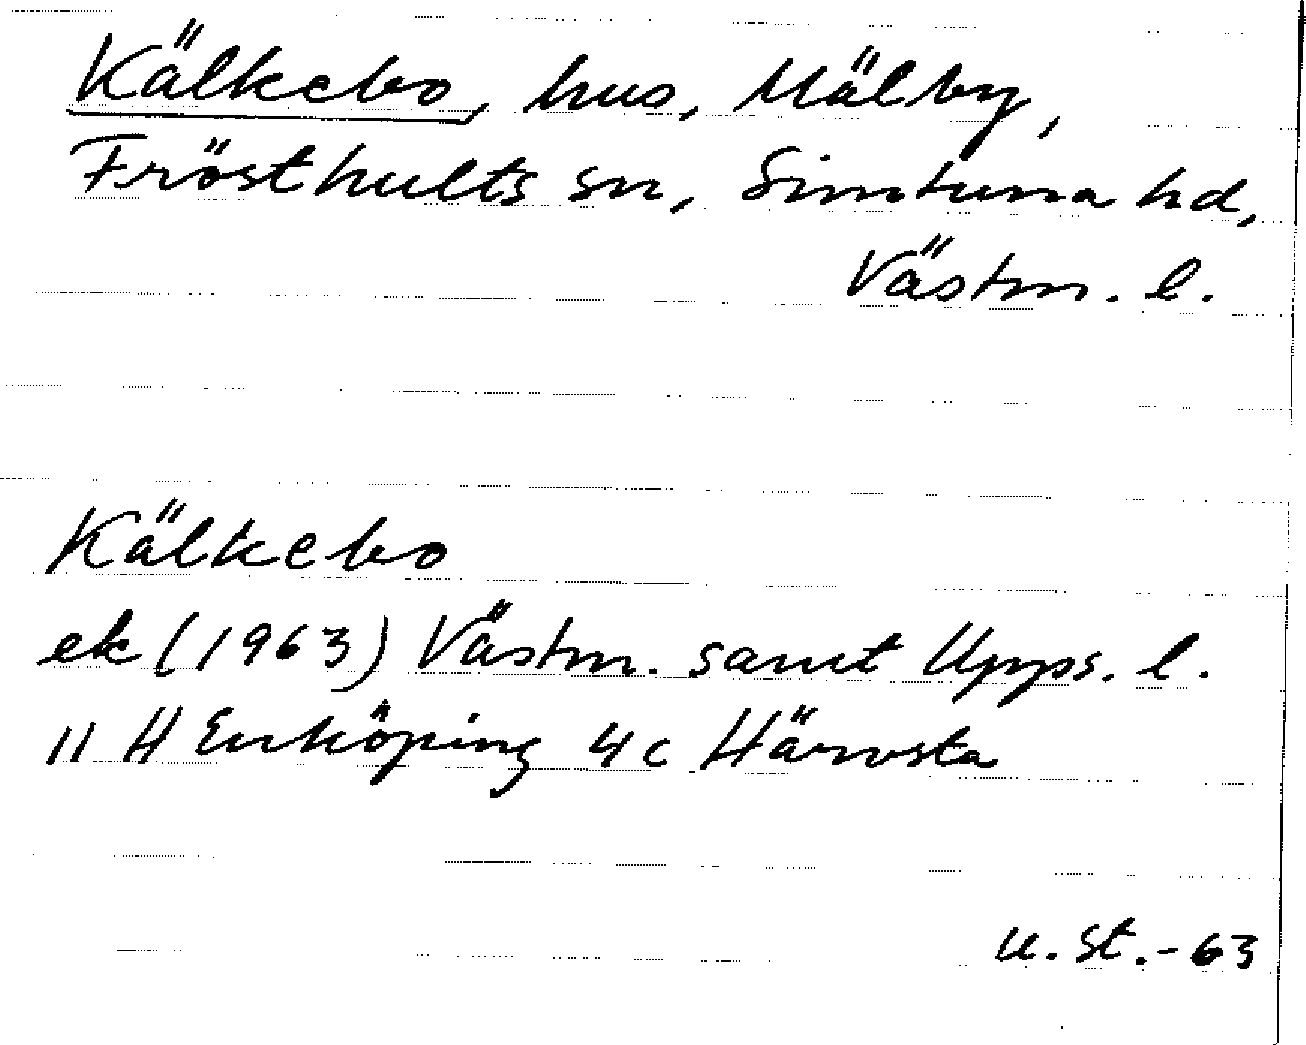 Kälkebo, hus, Mälby,
Frösthults sn, Simtuna hd,
Västm. l.
Kälkebo
ek (1963) Västm. samt Upps. l.
11 H Enköping 4c Härvsta
u. St. -63